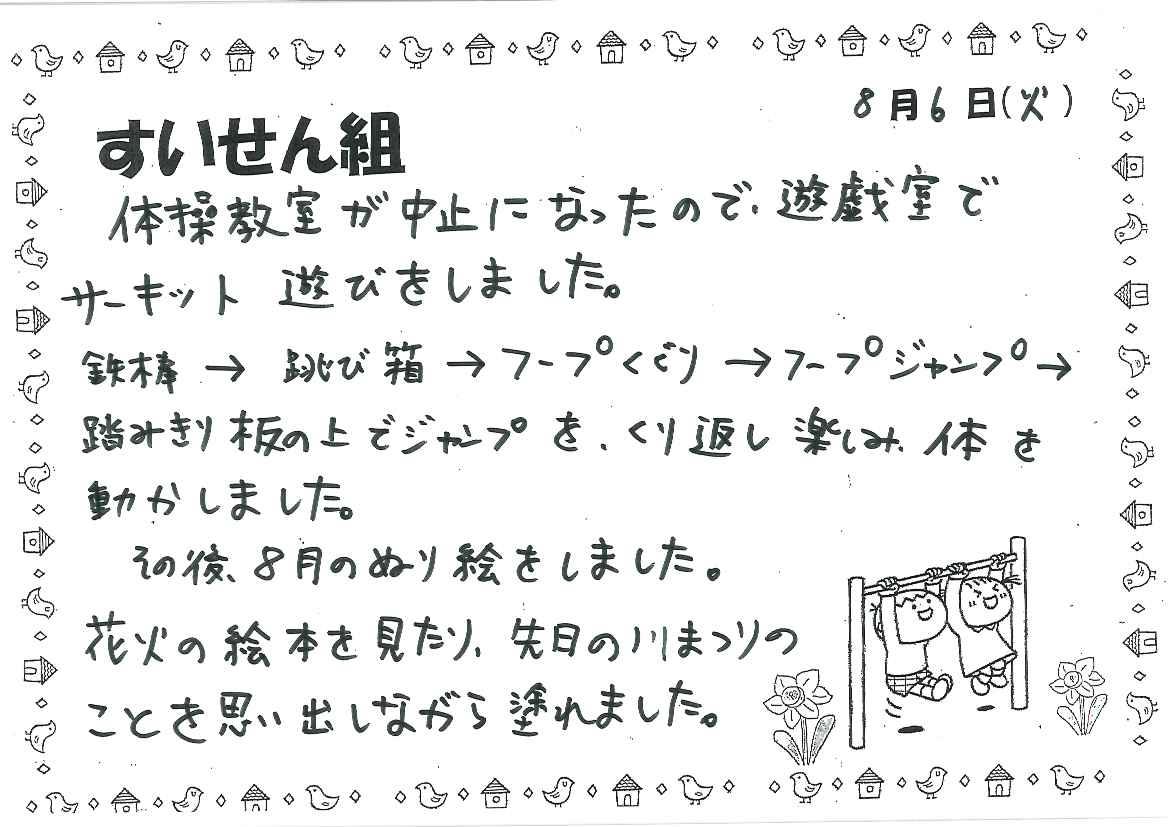 8月6日(火)
すいせん組
体操教室が中止になったので、遊戯室で
サーキット遊びをしました。
鉄棒→跳び箱→フープくぐり→フープジャンプ→
踏みきり板の上でジャンプを、くり返し楽しみ、体を
動かしました。
その後、8月のぬり絵をしました。
花火の絵本を見たり、先日の川まつりの
ことを思い出しながら塗れました。